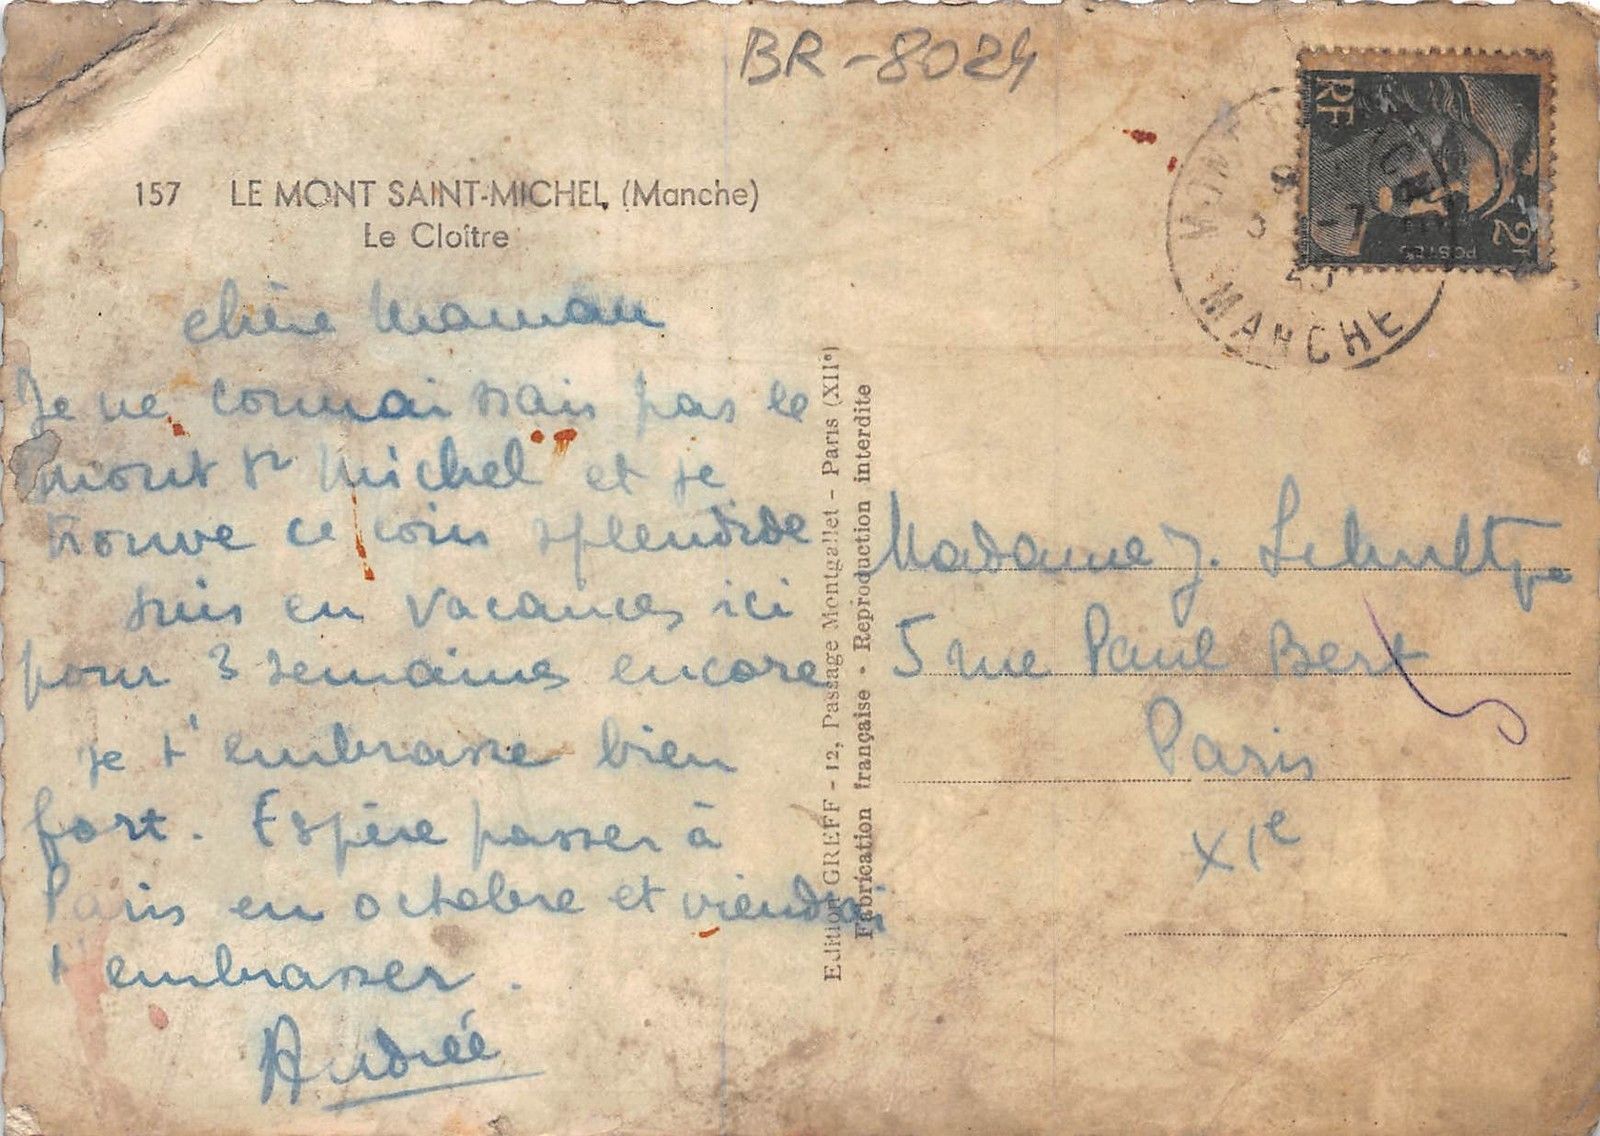 BR-8024
157 LE MONT SAINT-MICHEL (Manche)
Le Cloître
chère Maman
Je ne connaissais pas le
mont St Michel et je
trouve ce coin splendide
suis en vacances ici
pour 3 semaines encore
je t'embrasse bien
fort. Espère passer à
Paris en octobre et viendrai
t'embrasser.
Andrée
Edition GREFF - 12, Passage Montgallet - Paris (XIIe)
Fabrication française - Reproduction interdite
RF
POSTES
2F
3 -7
MANCHE
Madame J.
5 rue Paul Bert
Paris
XIe